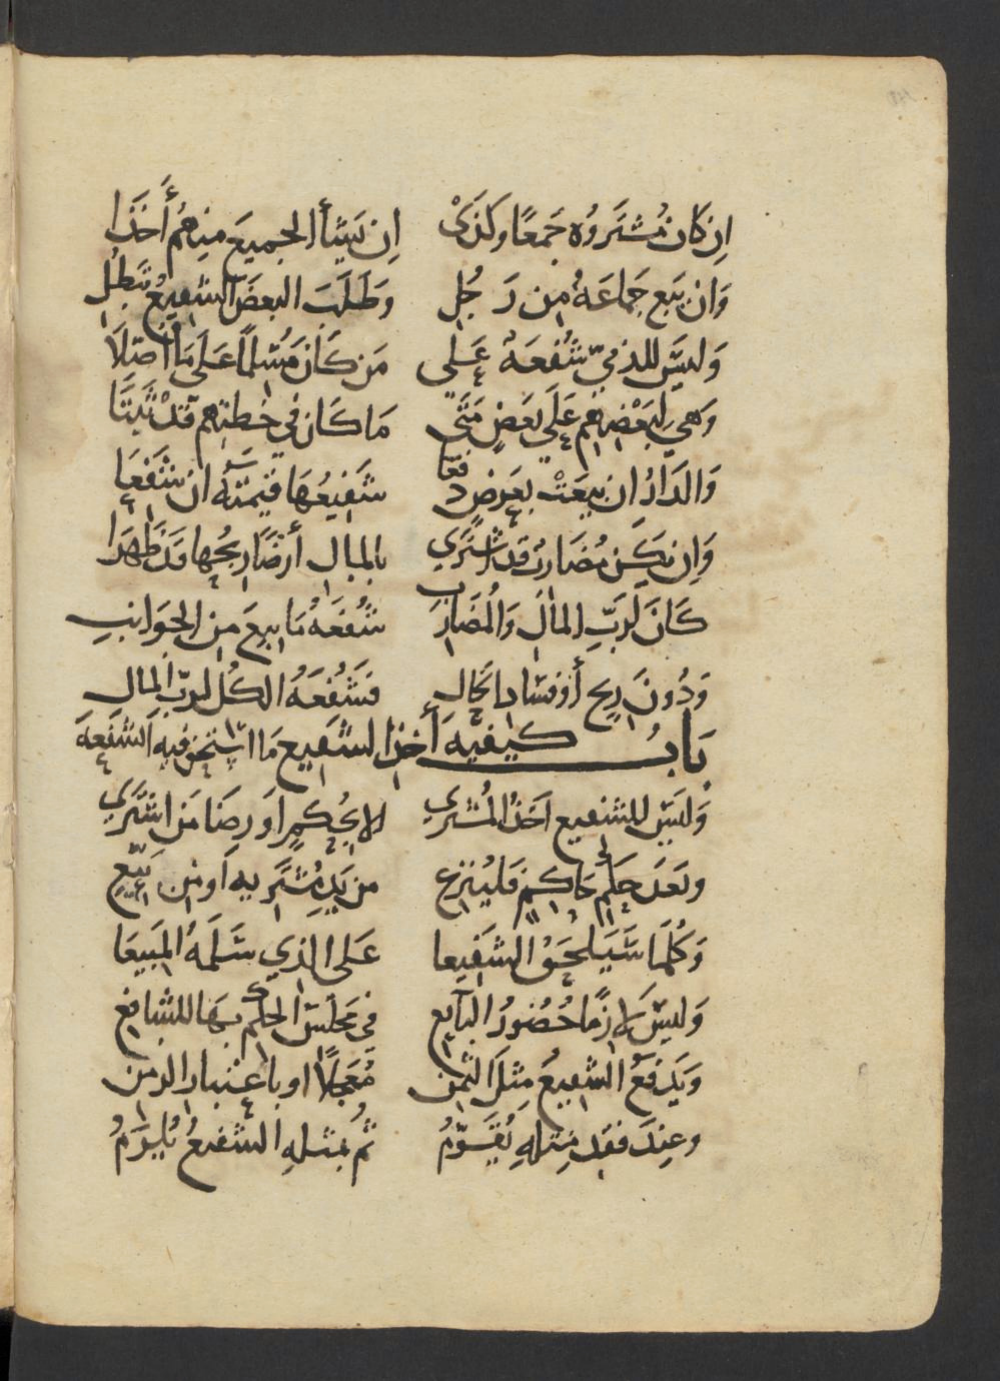 اِن كَان مُشتَروُه جَمعًا وكَذَى اِن يَشأ الجميعَ مِنهُم أَخَذَا
وَان يَبع جَماعَةٌ مِن رَجُلِ وَطَلَبَ البعضَ الشفيعُ تَبطُلِ
وَليسَ للذميّ شُفعَةٌ عَلى مَن كَانَ مُسْلماً عَلَى مَا أصّلَا
وَهي لبَعْضهم عَلَى بعَضٍ مَتَى مَا كَان في خطتهم قَدْ ثَبَتَا
وَالدَارُ ان بيعَتْ بعَرضٍ دفعَا شَفيعُهَا قيمَتَهُ ان شَفَعَا
وَاِن يَكن مُضَاربٌ قد اشتَري بالمال أرضًا ربحُها قَد ظهَرا
كَانَ لرَبِّ المالِ وَالمُضَارب شُفعَةُ مَا بيعَ من الجوَانبِ
وَدُونَ ربح أو فسَادِ الحَالِ فشُفعَةُ الكُلِّ لربّ المالِ
بَابُ كيفيه أخذ الشفيع مَا استحق فيه الشفعَة
وَليسَ للشفيع اَخذُ المُشتري الا بحُكمٍ اَو رِضَا مَن اشتَري
وبَعدَ حكم حَاكِمٍ فليُنزع من يَدِ مُشتَريه اَو من بَيّع
وَكُلمَا سَيَلحَقُ الشفيعا عَلى الذي سَلمَهُ المَبيعَا
وَليسَ لَازمًا حُضورُ البَايع في مَجلس الحكم بهَا للشافع
وَيَدفعُ الشفيعُ مِثلَ الثمن مُعَجلاً او باعتبار الزمن
وعِندَ فقد مِثلهِ يُقَوّمُ ثُم بمثلهِ الشفيعُ يُلزَمُ